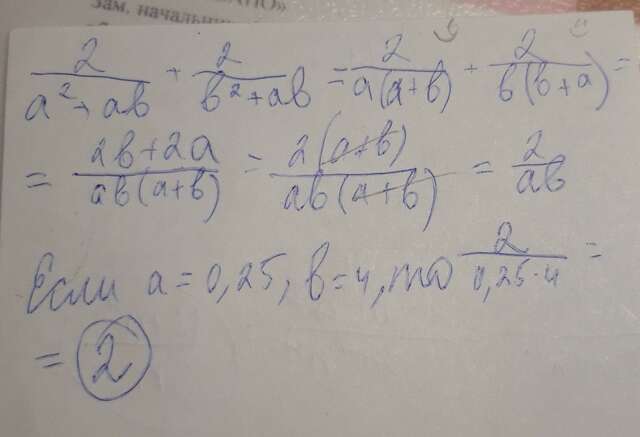 Зам. начальни
2/(a²+ab) + 2/(b²+ab) = 2/(a(a+b)) + 2/(b(b+a)) =
= (2b+2a)/(ab(a+b)) = 2(a+b)/(ab(a+b)) = 2/(ab)
Если a=0,25, b=4, то 2/(0,25·4) =
= 2